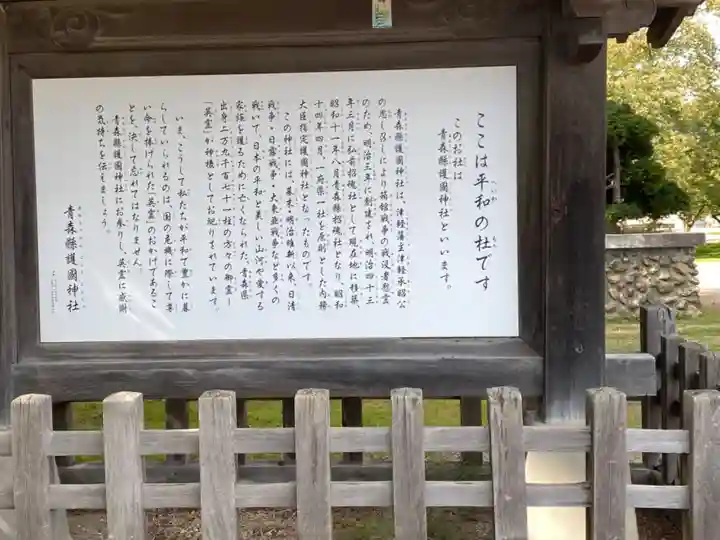 ここは平和の杜です
このお社は
青森縣護國神社といいます。
青森縣護國神社は、津軽藩主津軽承昭公
の思し召しにより箱館戦争の戦没者慰霊
のため、明治三年に創建され、明治四十三
年三月に弘前招魂社として現在地に移築
昭和十一年八月青森縣招魂社となり、昭和
十四年四月、一府県一社を原則とした内務
大臣指定護國神社となったものです。
この神社には、幕末・明治維新以来、日清
戦争・日露戦争・大東亜戦争など多くの
戦いで、日本の平和と美しい山河や愛する
家族を護るために亡くなられた、青森県
出身二万九千百七十一柱の方々の御霊―
「英霊」が神様としてお祀りされています。
いま、こうして私たちが平和で豊かに暮
らしていられるのは、国の危機に際して尊
い命を捧げられた「英霊」のおかげであるこ
とを、決して忘れてはなりません。
青森縣護國神社にお参りし、英霊に感謝
の気持ちを伝えましょう。
青森縣護國神社